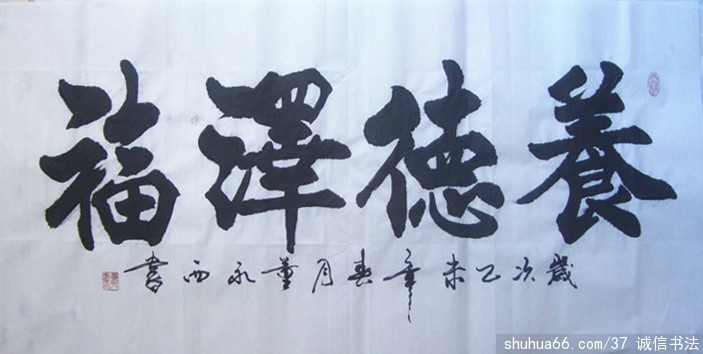 養德澤福
歲次乙未年春月董永西書
shuhua66.com/37 诚信书法